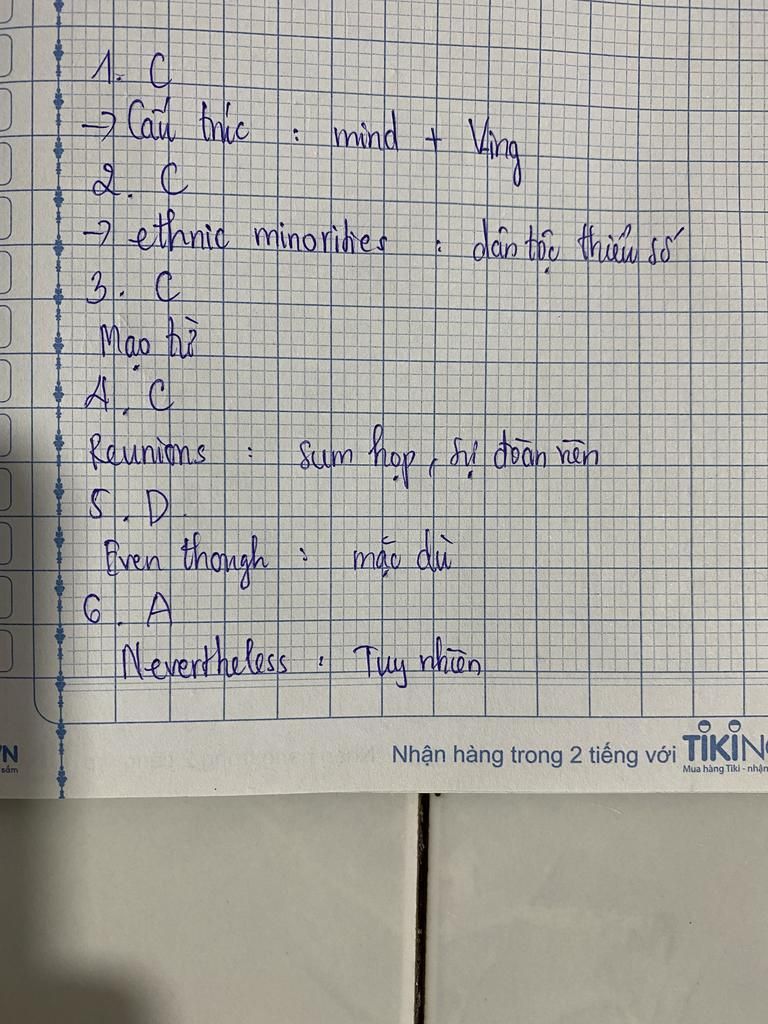 1. C
→ Cấu trúc : mind + Ving
2. C
→ ethnic minorities : dân tộc thiểu số
3. C
Mạo từ
4. C
Reunions : sum họp, sự đoàn viên
5. D.
Even though : mặc dù
6. A
Nevertheless : Tuy nhiên
Nhận hàng trong 2 tiếng với TIKIN
Mua hàng Tiki - nhận
VN
sắm